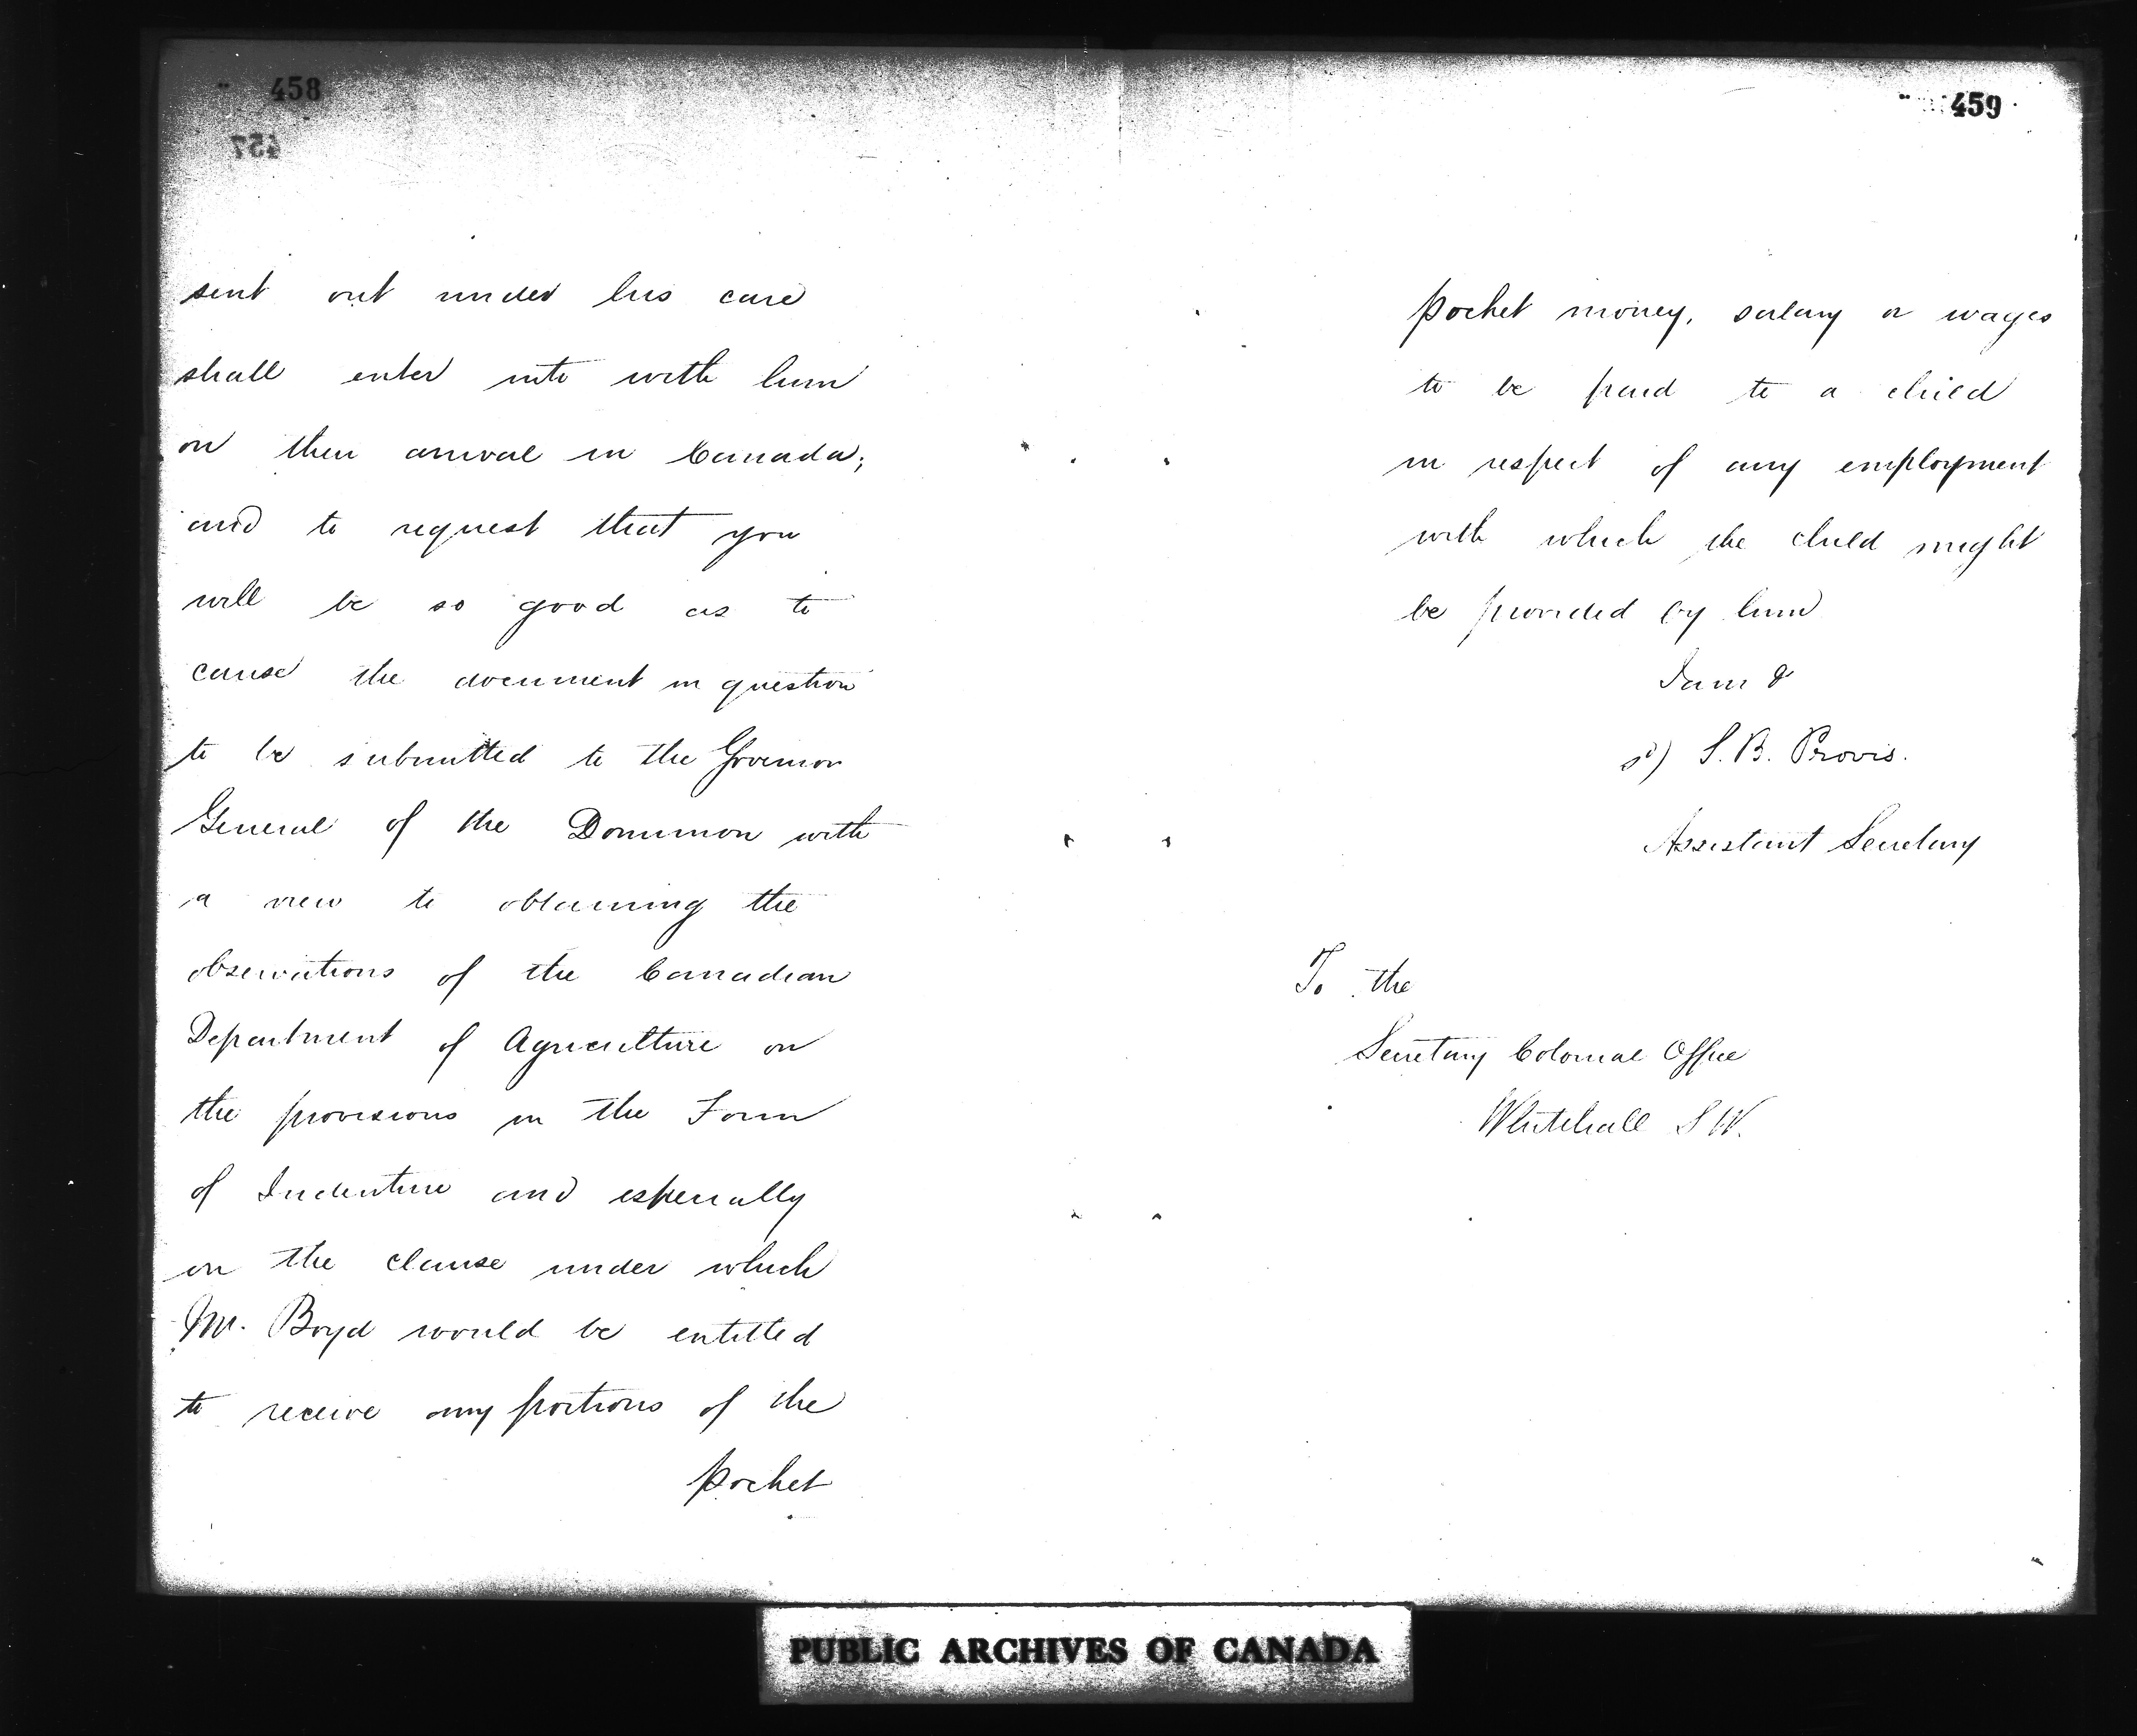 458
457
sent out under his care
shall enter into with him
on their arrival in Canada;
and to request that you
will be so good as to
cause the document in question
to be submitted to the Governor
General of the Dominion with
a view to obtaining the
observations of the Canadian
Department of Agriculture on
the provisions in the Form
of Indenture and especially
on the clause under which
Mr. Boyd would be entitled
to receive any portions of the
pocket
459
pocket money, salary or wages
to be paid to a child
in respect of any employment
with which the child might
be provided by him
I am &
sd) S. B. Provis.
Assistant Secretary
To the
Secretary Colonial Office
Whitehall S W.
PUBLIC ARCHIVES OF CANADA